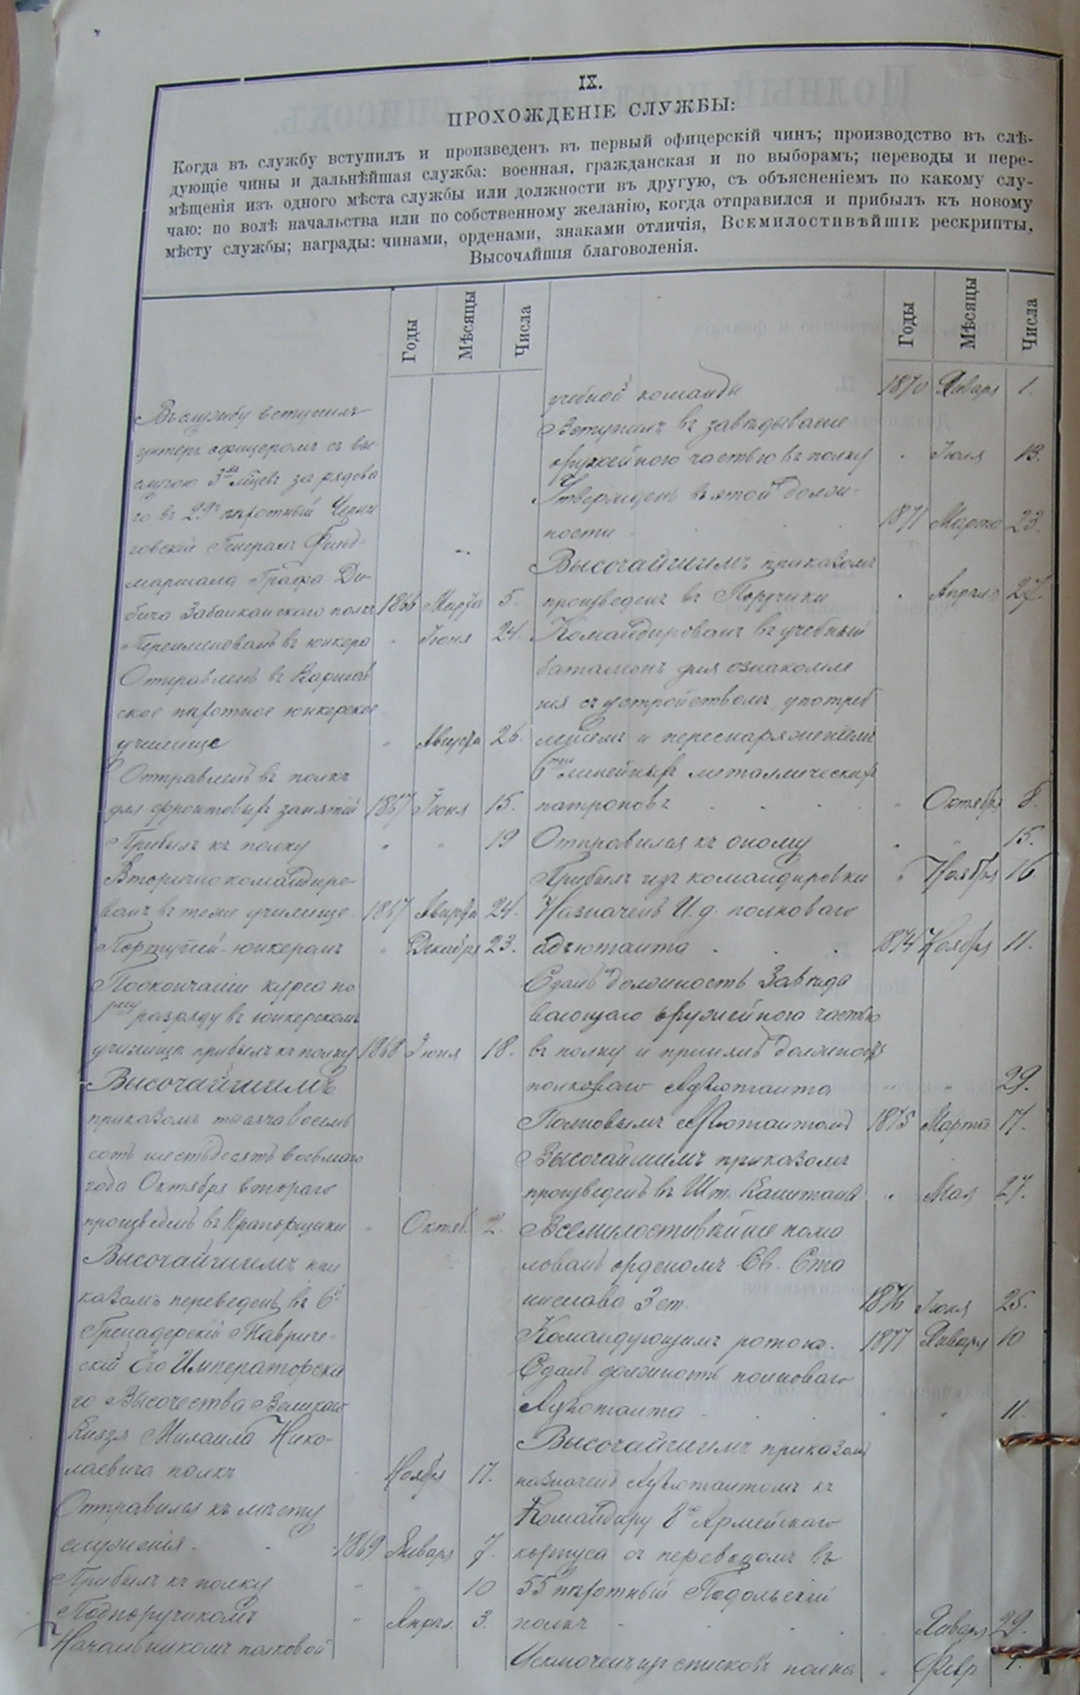 IX.
ПРОХОЖДЕНІЕ СЛУЖБЫ:
Когда въ службу вступилъ и произведенъ въ первый офицерскій чинъ; производство въ слѣ-
дующіе чины и дальнѣйшая служба: военная, гражданская и по выборамъ; переводы и пере-
мѣщенія изъ одного мѣста службы или должности въ другую, съ объясненіемъ по какому слу-
чаю: по волѣ начальства или по собственному желанію, когда отправился и прибылъ къ новому
мѣсту службы; награды: чинами, орденами, знаками отличія, Всемилостивѣйшіе рескрипты,
Высочайшія благоволенія.
Годы Мѣсяцы Числа
Въ службу вступилъ
унтеръ офицеромъ съ вы-
слугою 3хъ мѣсяц. за рядова
го въ 29й пѣхотный Черни
говскій Генералъ Фельд-
маршала Графа Ди-
бича Забалканскаго полкъ 1866 Марта 5.
Переименованъ въ юнкера " Іюня 24.
Отправленъ въ Варшав
ское пѣхотное юнкерское
училище " Августа 26.
Отправленъ въ полкъ
для фронтовыхъ занятій 1867 Іюня 15.
Прибылъ къ полку " " 19
Вторично командиро-
ванъ въ тоже училище 1867 Августа 24.
Портупей-юнкеромъ " Декабря 23.
По окончаніи курса по
разряду въ юнкерскомъ
училищѣ прибылъ къ полку 1868 Іюня 18.
Высочайшимъ
приказомъ тысяча восемь
сотъ шестьдесятъ восьмаго
года Октября втораго
произведенъ въ Прапорщики " Октяб. 2.
Высочайшимъ при
казомъ переведенъ въ 6й
Гренадерскій Тавриче-
скій Его Императорска
го Высочества Великаго
Князя Михаила Нико-
лаевича полкъ " Ноября 17.
Отправился къ мѣсту
служенія 1869 Января 7.
Прибылъ къ полку " " 10
Подпоручикомъ " Апрѣл. 3.
Начальникомъ полковой
Годы Мѣсяцы Числа
учебной команды 1870 Января 1.
Вступилъ въ завѣдываніе
оружейною частью въ полку " Іюля 13.
Утвержденъ въ этой долж-
ности 1871 Марта 23.
Высочайшимъ приказомъ
произведенъ въ Поручики " Апрѣля 27.
Командированъ въ учебный
баталіонъ для ознакомле
нія съ устройствомъ, употреб
леніемъ и переснаряженіемъ
6ти линейныхъ металлическихъ
патроновъ " Октября 8.
Отправился къ оному " " 15.
Прибылъ изъ командировки " Ноября 16
Назначенъ И. д. полковаго
адъютанта 1874 Ноября 11.
Сдалъ должность Завѣды
вающаго оружейною частью
въ полку и принялъ должность
полковаго Адъютанта " " 29.
Полковымъ Адъютантомъ 1875 Марта 17.
Высочайшимъ приказомъ
произведенъ въ Шт. Капитаны " Мая 27.
Всемилостивѣйше пожа
лованъ орденомъ Св. Ста
нислава 3 ст. 1876 Іюля 25.
Командующимъ ротою. 1877 Января 10
Сдалъ должность полковаго
Адъютанта " " 11.
Высочайшимъ приказомъ
назначенъ Адъютантомъ къ
Командиру 8го Армейскаго
корпуса съ переводомъ въ
55й пѣхотный Подольскій
полкъ Января 29.
Исключенъ изъ списковъ полка " Февр